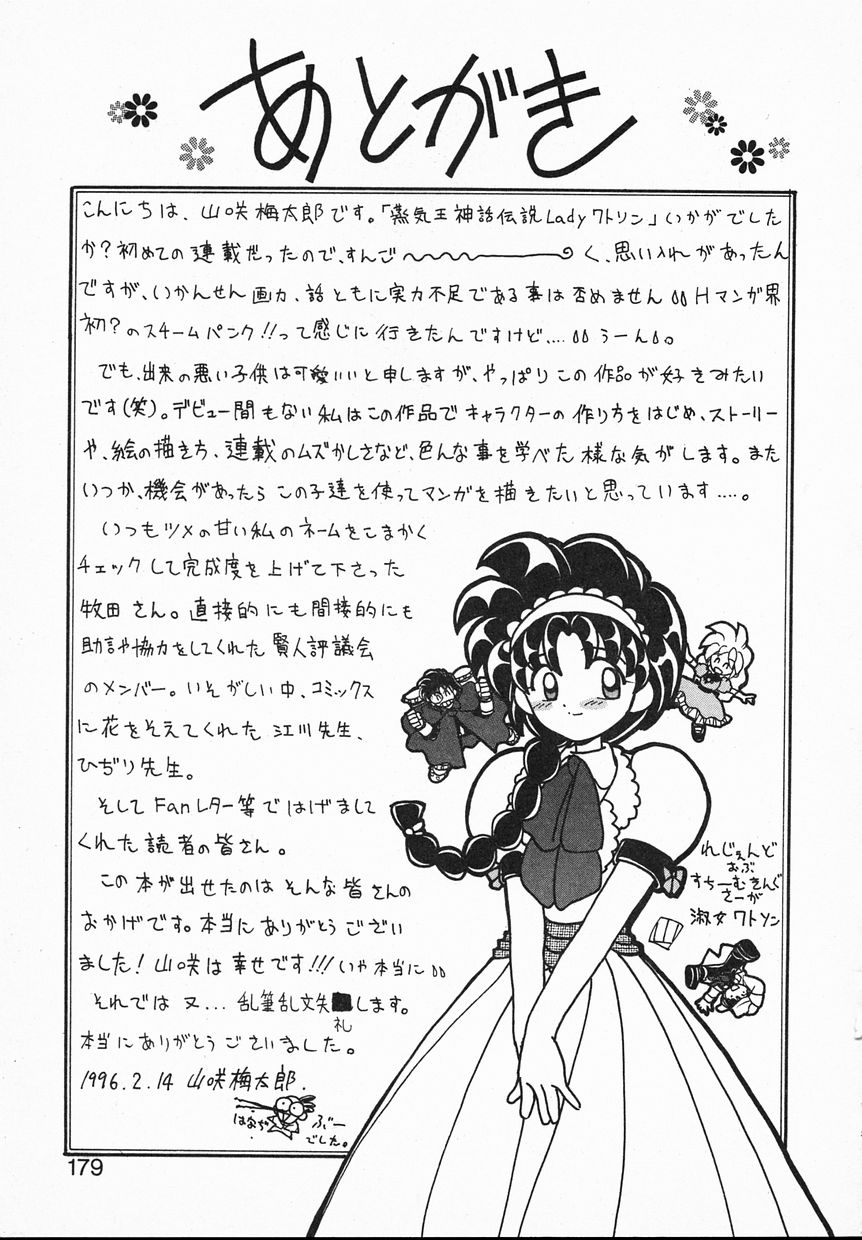 あとがき
こんにちは、山咲梅太郎です。「蒸気王神話伝説Ladyワトソン」いかがでした
か?初めての連載だったので、すんご〜〜〜く、思い入れがあったん
ですが、いかんせん画力、話ともに実力不足である事は否めません Hマンガ界
初?のスチームパンク!!って感じに行きたんですけど.... うーん。
でも、出来の悪い子供は可愛いいと申しますが、やっぱりこの作品が好きみたい
です(笑)。デビュー間もない私はこの作品でキャラクターの作り方をはじめ、ストーリー
や、絵の描き方、連載のムズかしさなど、色んな事を学べた様な気がします。また
いつか、機会があったらこの子達を使ってマンガを描きたいと思っています....。
いつもツメの甘い私のネームをこまかく
チェックして完成度を上げて下さった
牧田さん。直接的にも間接的にも
助言や協力をしてくれた賢人評議会
のメンバー。いそがしい中、コミックス
に花をそえてくれた江川先生、
ひぢり先生。
そしてFanレター等ではげまして
くれた読者の皆さん。
この本が出せたのはそんな皆さんの
おかげです。本当にありがとうござい
ました!山咲は幸せです!!!いや本当に
それでは又...乱筆乱文失礼します。
本当にありがとうございました。
1996.2.14 山咲梅太郎.
はなぢ
ぶー
でした。
れじぇんど
おぶ
すちーむきんぐ
さーが
淑女ワトソン
179